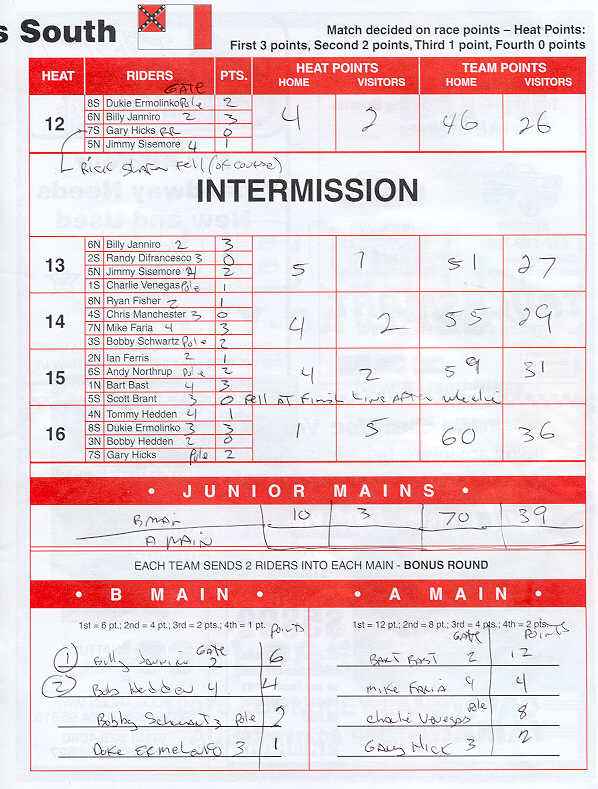 s South
Match decided on race points – Heat Points:
First 3 points, Second 2 points, Third 1 point, Fourth 0 points
HEAT RIDERS PTS. HEAT POINTS TEAM POINTS
GATE HOME VISITORS HOME VISITORS
12
8S Dukie Ermolinko Pole 2
6N Billy Janniro 2 3
7S Gary Hicks RR 0
5N Jimmy Sisemore 4 1
4 2 46 26
Fell (of course)
INTERMISSION
13
6N Billy Janniro 2 3
2S Randy Difrancesco 3 0
5N Jimmy Sisemore 4 2
1S Charlie Venegas Pole 1
5 1 51 27
14
8N Ryan Fisher 2 1
4S Chris Manchester 3 0
7N Mike Faria 4 3
3S Bobby Schwartz Pole 2
4 2 55 29
15
2N Ian Ferris 2 1
6S Andy Northrup Pole 2
1N Bart Bast 4 3
5S Scott Brant 3 0 Fell AT Finish Line AFTER wheelie
4 2 59 31
16
4N Tommy Hedden 4 1
8S Dukie Ermolinko 3 3
3N Bobby Hedden 2 0
7S Gary Hicks Pole 2
1 5 60 36
• JUNIOR MAINS •
B MAIN 10 3 70 39
A MAIN
EACH TEAM SENDS 2 RIDERS INTO EACH MAIN - BONUS ROUND
• B MAIN •
1st = 6 pt.; 2nd = 4 pt.; 3rd = 2 pts.; 4th = 1 pt. Points
GATE
1 Billy Janniro 2 6
2 Bob Hedden 4 4
Bobby Schwartz Pole 2
Duke Ermolenko 3 1
• A MAIN •
1st = 12 pt.; 2nd = 8 pt.; 3rd = 4 pts.; 4th = 2 pts.
GATE Points
BART BAST 2 12
MIKE FARIA 4 4
Charlie Venegas Pole 8
GARY HICK 3 2